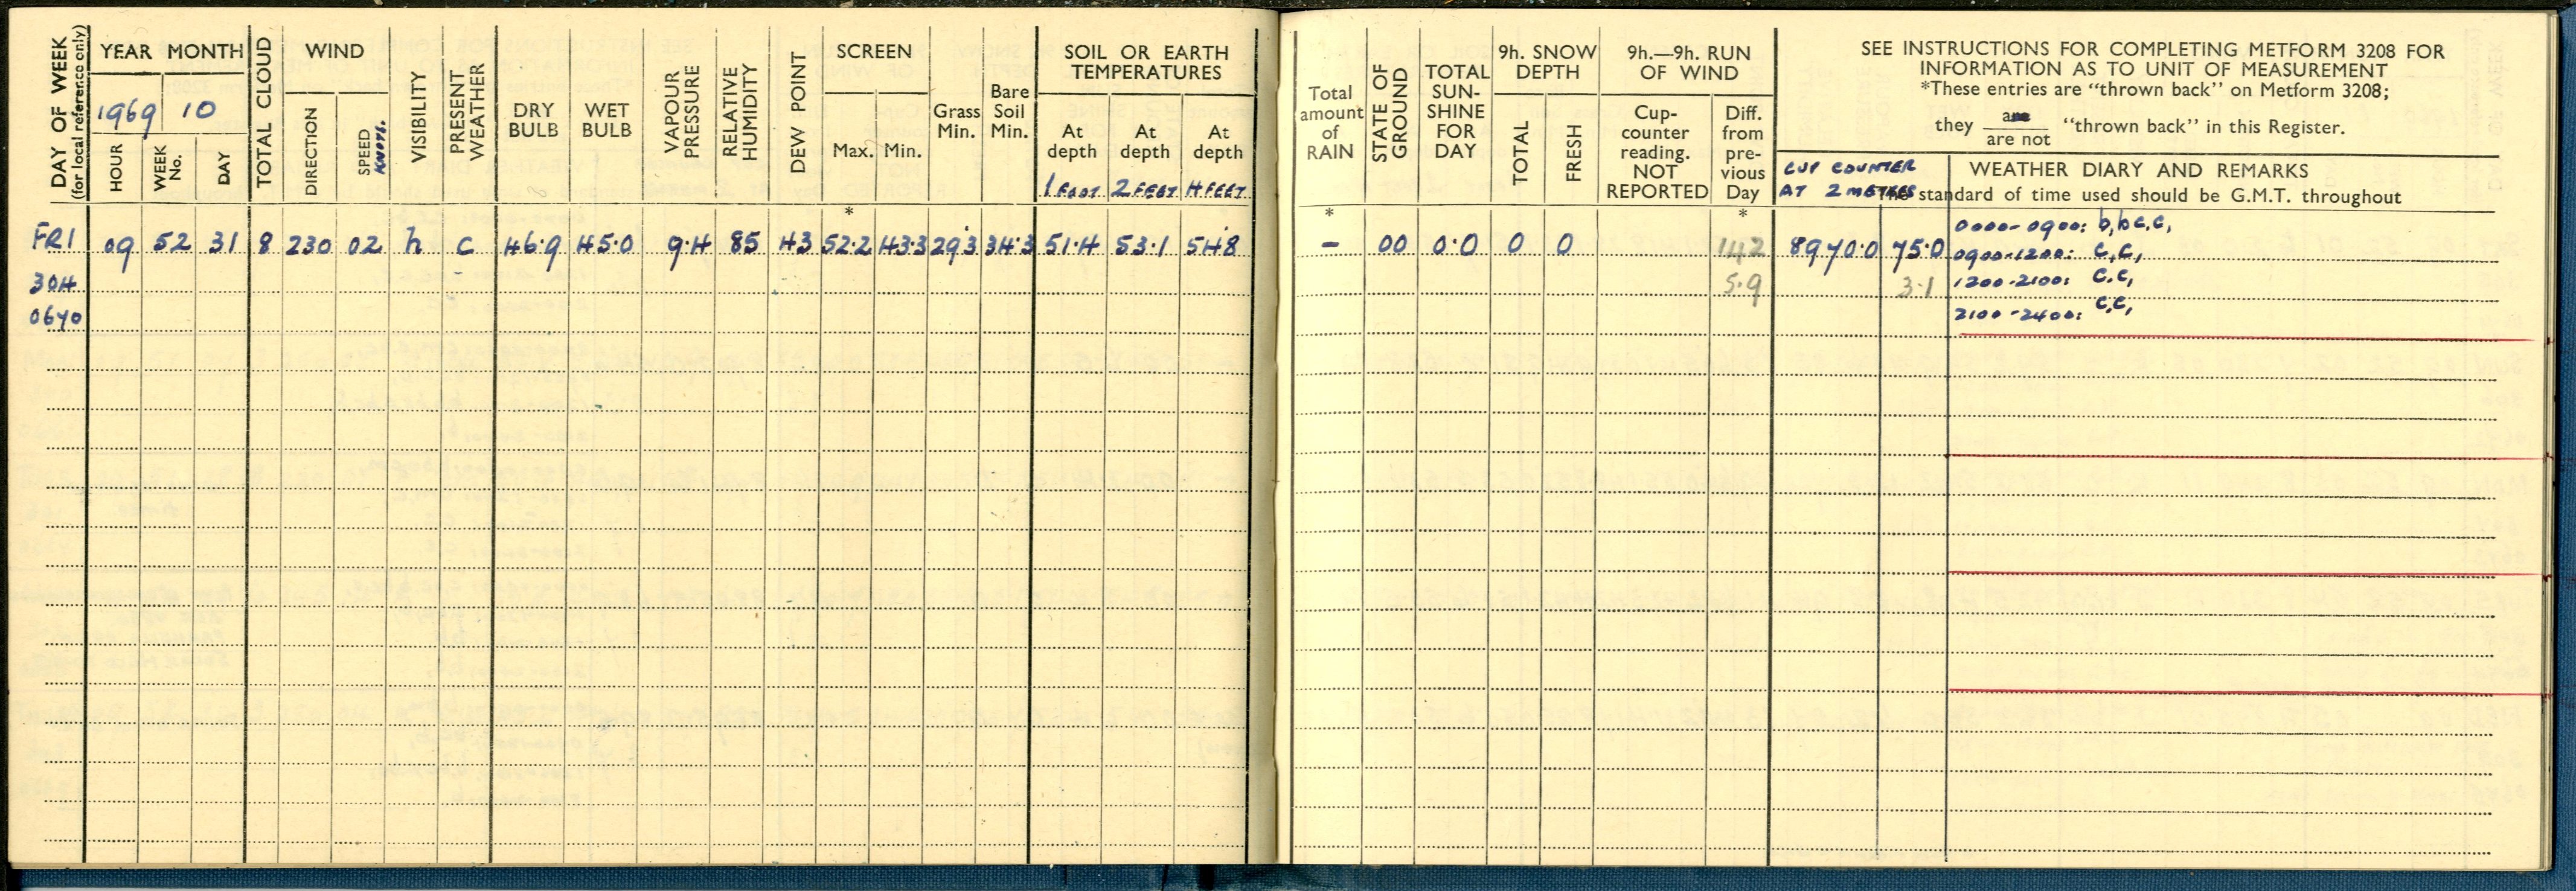 DAY OF WEEK
(for local reference only)
YEAR MONTH
1969 10
HOUR
WEEK No.
DAY
TOTAL CLOUD
WIND
DIRECTION
SPEED KNOTS.
VISIBILITY
PRESENT WEATHER
DRY BULB
WET BULB
VAPOUR PRESSURE
RELATIVE HUMIDITY
DEW POINT
SCREEN
Max. Min.
Grass Min.
Bare Soil Min.
SOIL OR EARTH
TEMPERATURES
At depth At depth At depth
1 FOOT 2 FEET 4 FEET
*
FRI 09 52 31 8 230 02 h c 46.9 45.0 9.4 85 43 52.2 43.3 29.3 34.3 51.4 53.1 54.8
304
0640
Total amount of RAIN
STATE OF GROUND
TOTAL SUN-SHINE FOR DAY
9h. SNOW DEPTH
TOTAL
FRESH
9h.—9h. RUN OF WIND
Cup-counter reading. NOT REPORTED
Diff. from pre-vious Day
SEE INSTRUCTIONS FOR COMPLETING METFORM 3208 FOR
INFORMATION AS TO UNIT OF MEASUREMENT
*These entries are "thrown back" on Metform 3208;
they are / are not "thrown back" in this Register.
CUP COUNTER
AT 2 METRES
WEATHER DIARY AND REMARKS
The standard of time used should be G.M.T. throughout
* *
– 00 0.0 0 0 142 8970.0 75.0
5.9 3.1
0000-0900: b,bc,c,
0900-1200: c,c,
1200-2100: c.c,
2100-2400: c,c,